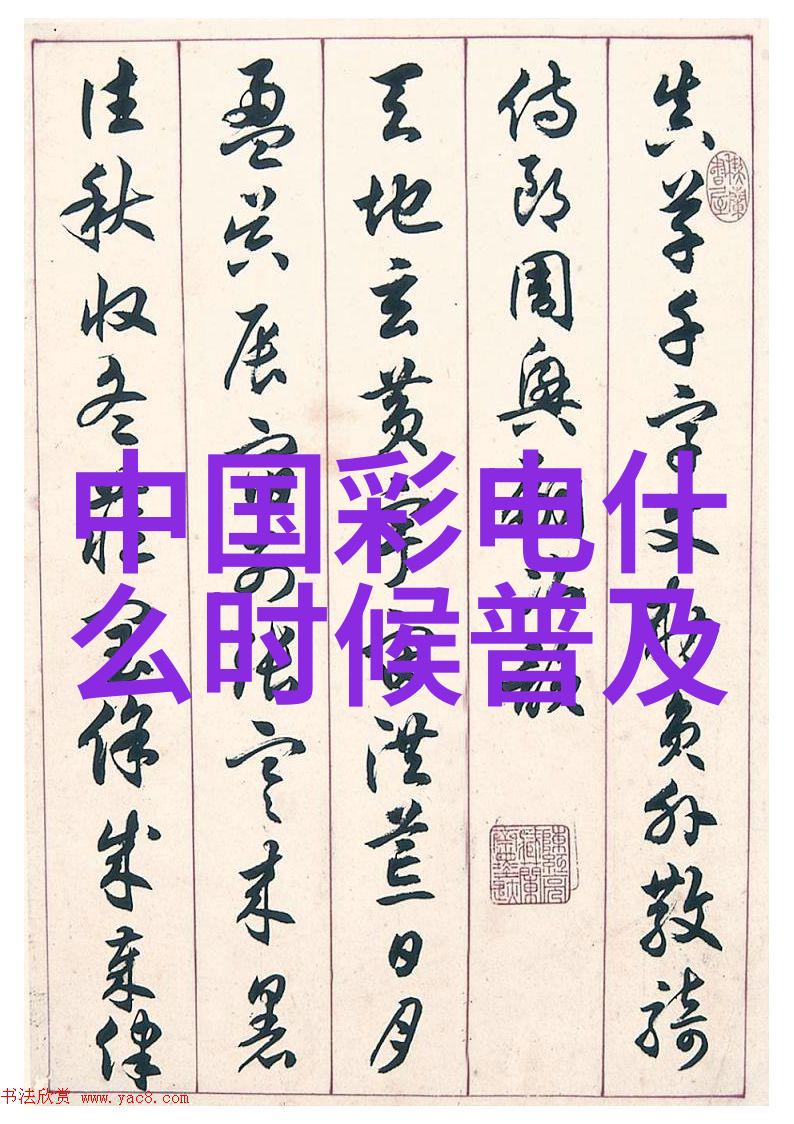 真草千字文敕員外散騎
侍郎周興嗣次韻
天地玄黃宇宙洪荒日月
盈昃辰宿列張寒來暑
往秋收冬藏閏餘成歲律
中国彩电什
么时候普及
书法欣赏 www.yac8.com